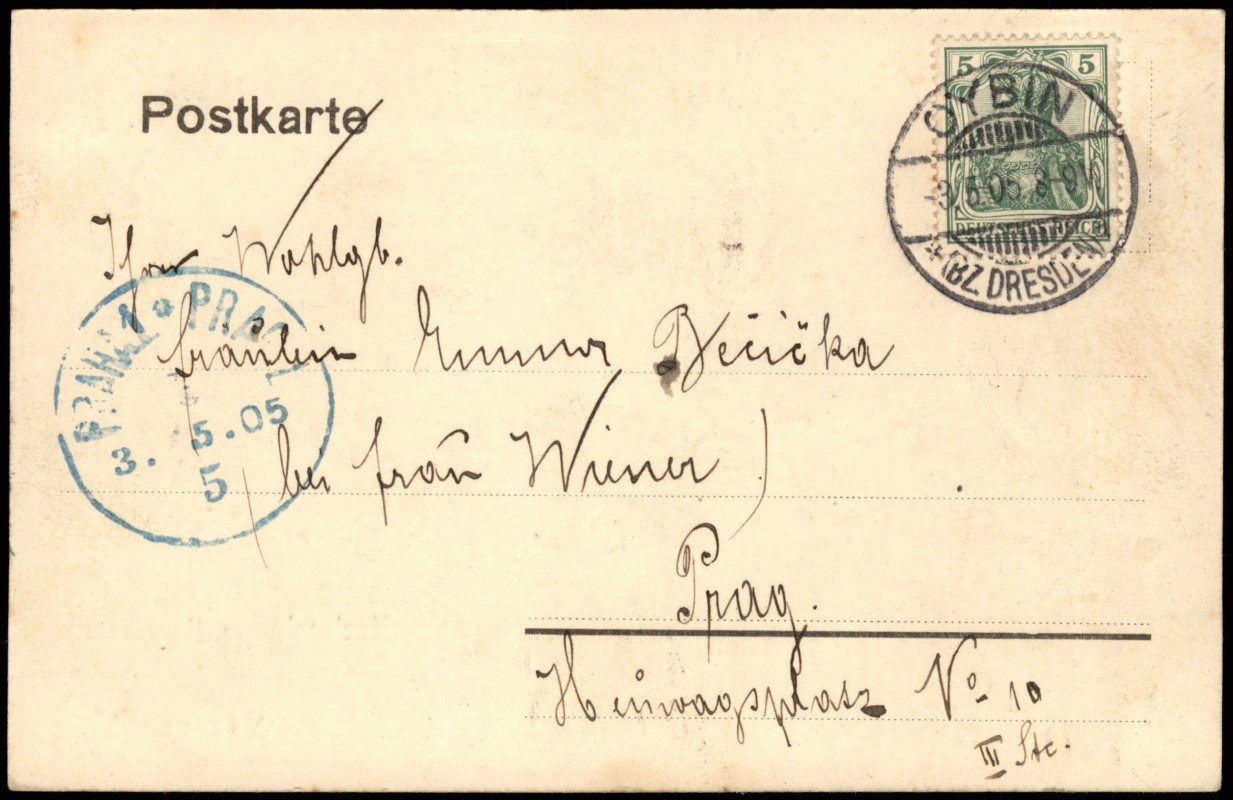 Postkarte
5 5
OYBIN
3.5.05. 8-9V.
* (BZ. DRESDEN)
DEUTSCHES REICH
Wohlgb.
PRAHA 1 * PRAG 1
3. 5.05
5
Fräulein Emma Běčička
bei Frau Wiener)
Prag.
Heuwagsplatz No 10
III Stc.